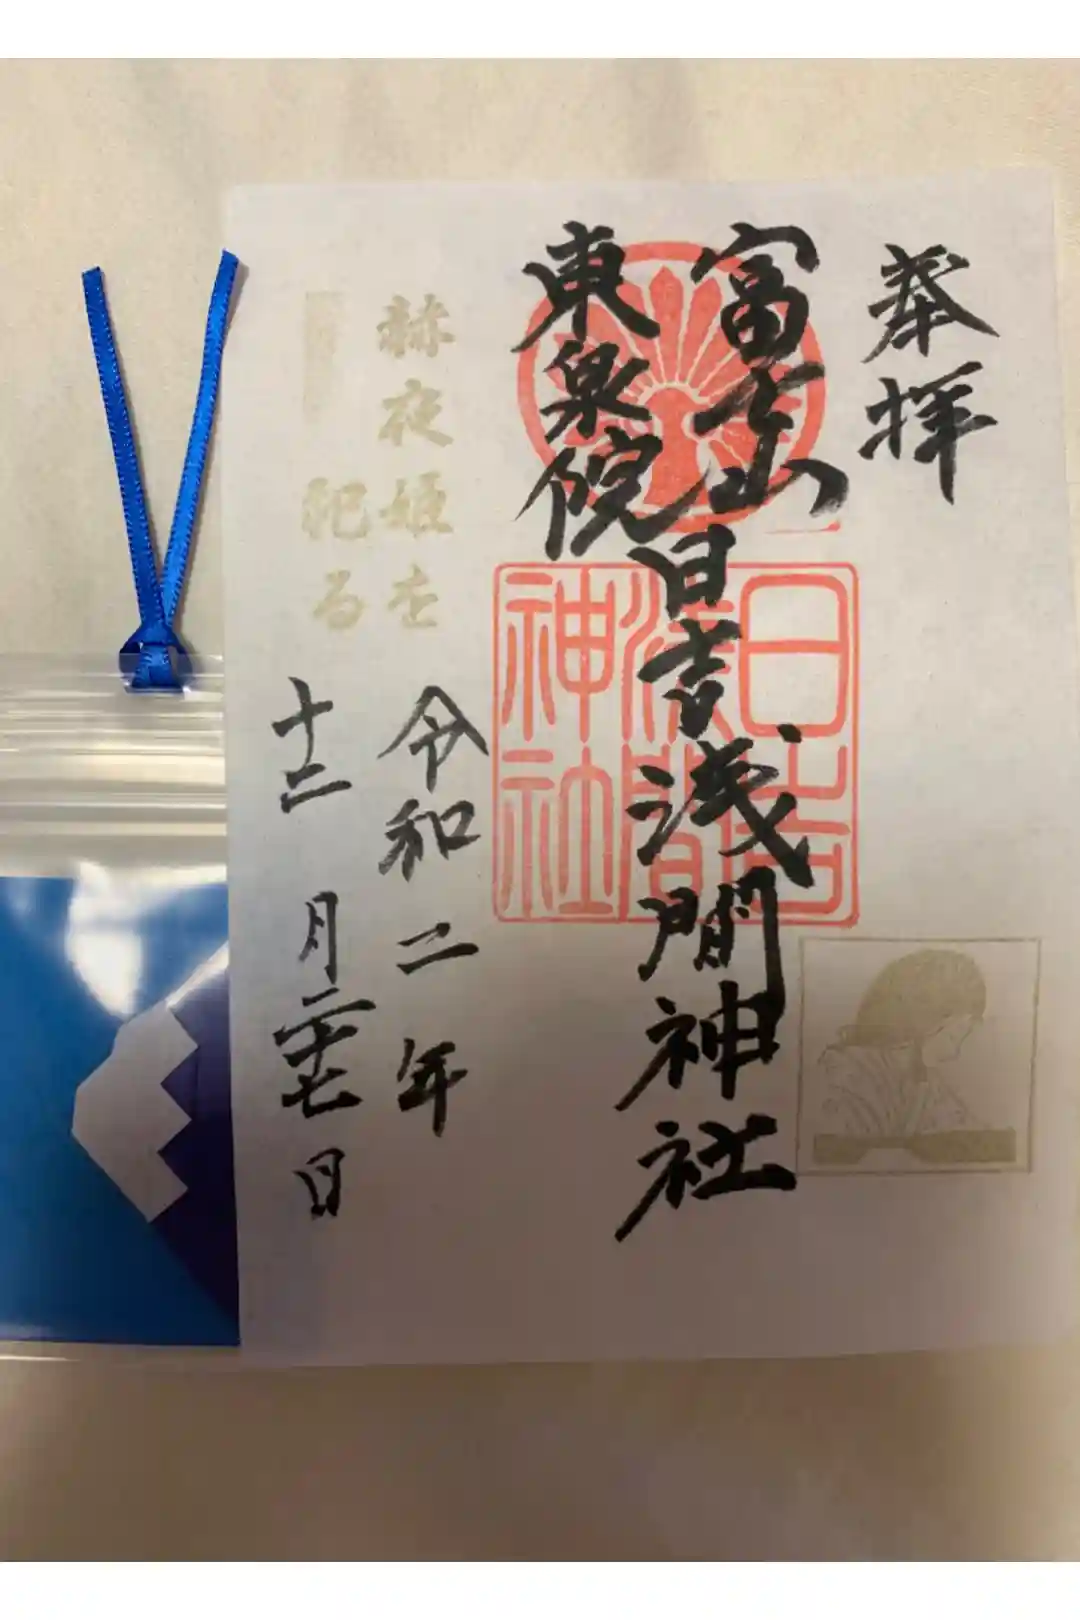 奉拝
富士山日吉浅間神社
東泉院
日吉
浅間
神社
赫夜姫を
祀る
令和二年
十二月二十七日